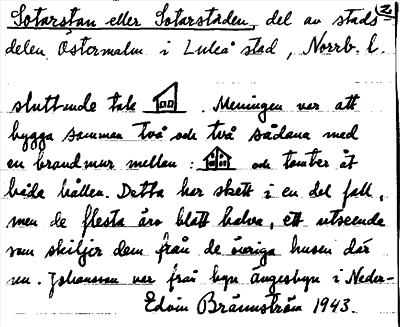 Sotarstan eller Sotarstaden, del av stads- (2)
delen Östermalm i Luleå stad, Norrb. l.
sluttande tak . Meningen var att
bygga samman två och två sådana med
en brandmur mellan : och tomter åt
båda hållen. Detta har skett i en del fall,
men de flesta äro blott halva, ett utseende
som skiljer dem från de övriga husen där
nu. Johansson var från byn Ängesbyn i Neder-
Edvin Brännström 1943.